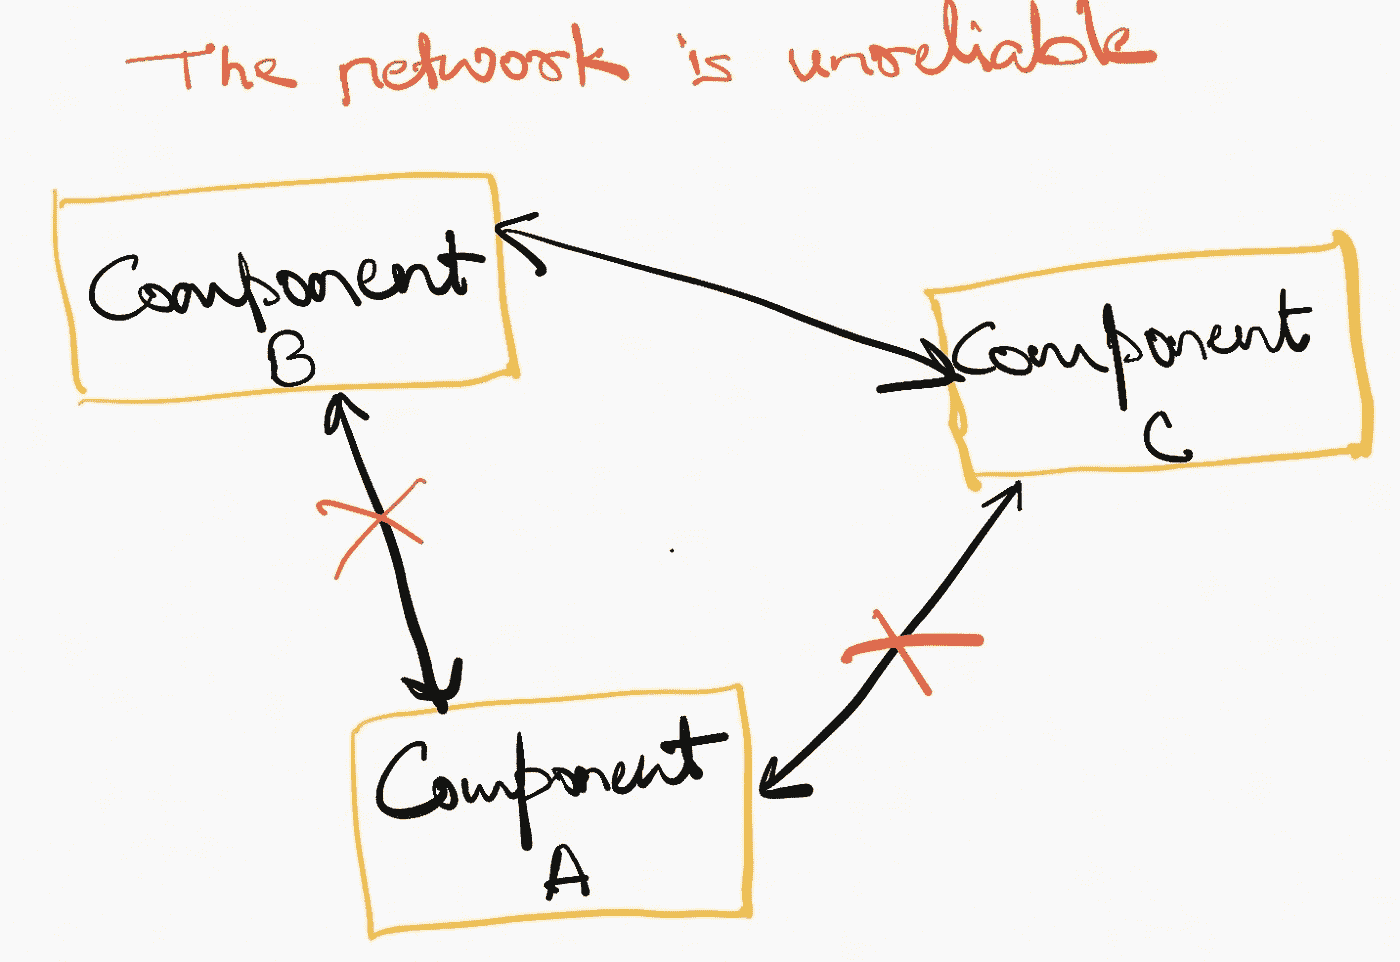 The network is unreliable
Component
B
Component
C
Component
A